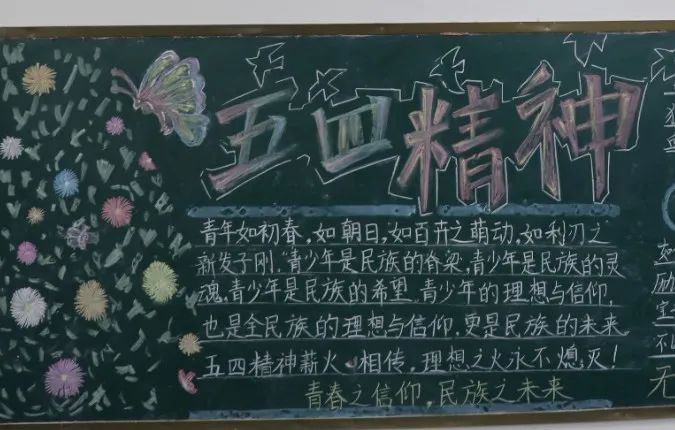 五四精神
青年如初春,如朝日,如百卉之萌动,如利刃之
新发于刚.青少年是民族的脊梁,青少年是民族的灵
魂,青少年是民族的希望.青少年的理想与信仰,
也是全民族的理想与信仰,更是民族的未来.
五四精神薪火相传,理想之火永不熄灭!
青春之信仰,民族之未来